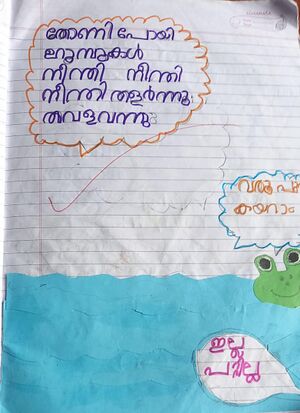 തോണി പോയി
ഉറുമ്പുകൾ
നീന്തി നീന്തി
നീന്തി തളർന്നു
തവളവന്നു
വരൂ
കയറാം
ഇല്ല
പറ്റില്ല